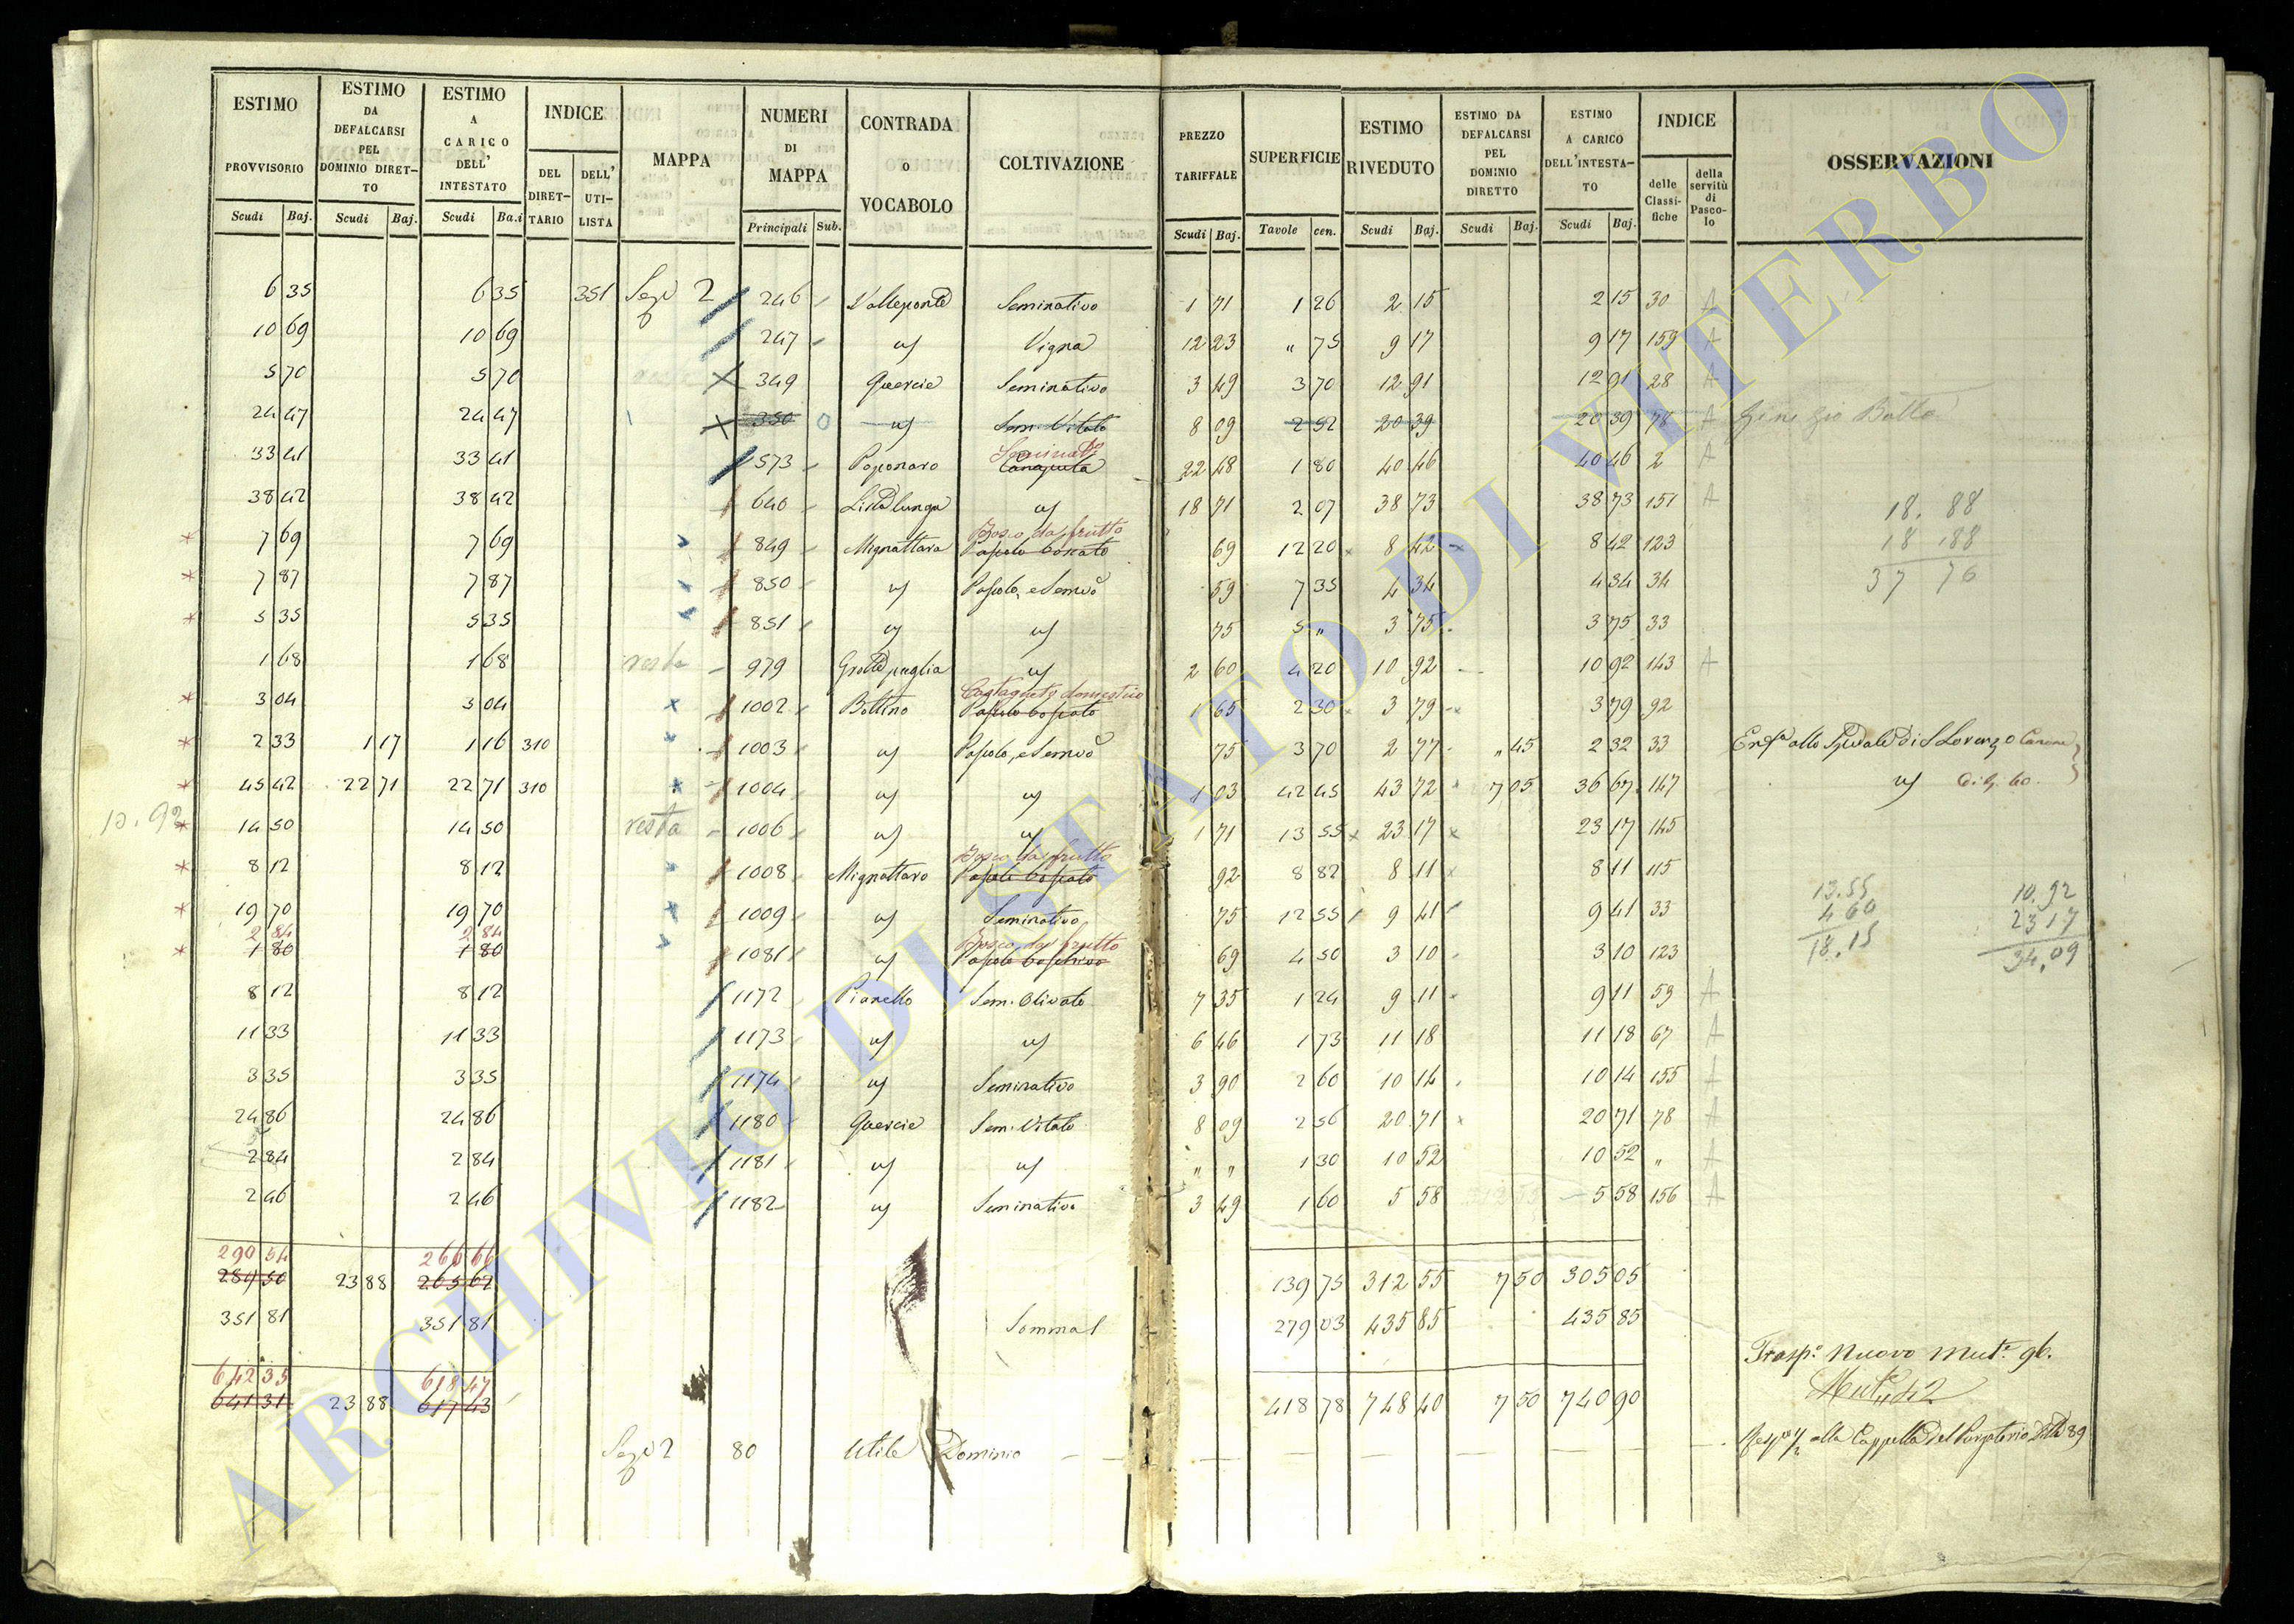 ESTIMO PROVVISORIO Scudi Baj. | ESTIMO DA DEFALCARSI PEL DOMINIO DIRETTO Scudi Baj. | ESTIMO A CARICO DELL' INTESTATO Scudi Ba.i | INDICE DEL DIRETTARIO DELL' UTILISTA | MAPPA | NUMERI DI MAPPA Principali Sub. | CONTRADA O VOCABOLO | COLTIVAZIONE | PREZZO TARIFFALE Scudi Baj. | SUPERFICIE Tavole cen. | ESTIMO RIVEDUTO Scudi Baj. | ESTIMO DA DEFALCARSI PEL DOMINIO DIRETTO Scudi Baj. | ESTIMO A CARICO DELL'INTESTATO Scudi Baj. | INDICE delle Classifiche della servitù di Pascolo | OSSERVAZIONI
6 35 6 35 351 Sez 2 246 Valleponte Seminativo 1 71 1 26 2 15 2 15 30 A
10 69 10 69 247 Vigna 12 23 " 75 9 17 9 17 159 A
5 70 5 70 349 Quercie Seminativo 3 49 3 70 12 91 12 91 28 A
24 47 24 47 350 0 Sem. Vitato 8 09 2 52 20 39 20 39 78 A
33 41 33 41 573 Paponaro Seminat Canaputa 22 48 1 80 40 46 40 46 2 A
38 42 38 42 640 Lista lunga 18 71 2 07 38 73 38 73 151 A
18. 88
18 .88
37 76
7 69 7 69 849 Mignattara Bosco da frutto Pascolo boscato 69 12 20 8 42 8 42 123
7 87 7 87 850 Pascolo, e Semvo 59 7 35 4 34 4 34 34
5 35 5 35 851 75 5 " 3 75 3 75 33
1 68 1 68 resta 979 Grotta puglia 2 60 4 20 10 92 10 92 143 A
3 04 3 04 1002 Bottino Castagneto domestico Pascolo boscato 1 65 2 30 3 79 3 79 92
2 33 1 17 1 16 310 1003 Pascolo, e Semvo 75 3 70 2 77 " 45 2 32 33 allo Spedale di S Lorenzo
45 42 22 71 22 71 310 1004 1 03 42 45 43 72 7 05 36 67 147
14 50 14 50 resta 1006 1 71 13 55 23 17 23 17 145
8 12 8 12 1008 Mignattaro Bosco da frutto Pascolo boscato 92 8 82 8 11 8 11 115
13.55 10.92
4 60 23 17
18.15 34.09
19 70 19 70 1009 Seminativo 75 12 55 9 41 9 41 33
2 84 2 84
1 80 1 80 1081 Bosco da frutto Pascolo boschivo 69 4 50 3 10 3 10 123
8 12 8 12 1172 Pianello Sem. Olivato 7 35 1 24 9 11 9 11 59 A
11 33 11 33 1173 6 46 1 73 11 18 11 18 67 A
3 35 3 35 1174 Seminativo 3 90 2 60 10 14 10 14 155 A
24 86 24 86 1180 Quercie Sem. Vitato 8 09 2 56 20 71 20 71 78 A
2 84 2 84 1181 " " 1 30 10 52 10 52 " A
2 46 2 46 1182 Seminativo 3 49 1 60 5 58 5 58 156 A
290 54 266 66
289 50 23 88 265 62 139 75 312 55 7 50 305 05
351 81 351 81 Somma 279 03 435 85 435 85
Trasp.o Nuovo Mut.e 96.
642 35 618 47
641 31 23 88 617 43 418 78 748 40 7 50 740 90
Sez 2 80 Utile Dominio alla Cappella del Purgatorio 89
ARCHIVIO DI STATO DI VITERBO